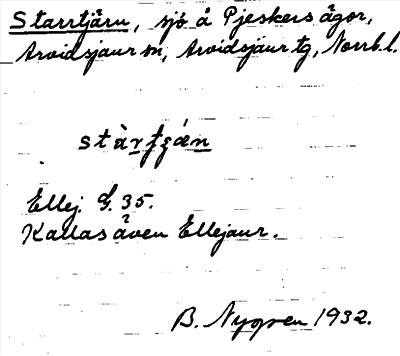 Starrtjärn, sjö å Pjeskers ägor,
Arvidsjaur sn, Arvidsjaur tg, Norrb. l.
Ellej. G. 35.
Kallas även Ellejaur.
B. Nygren 1932.